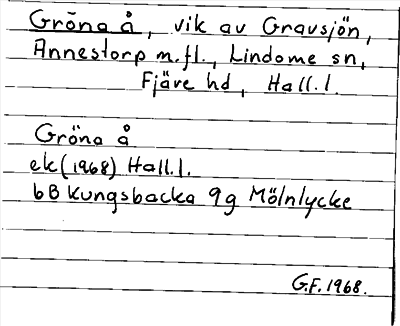 Gröna å, vik av Gravsjön,
Annestorp m.fl., Lindome sn,
Fjäre hd, Hall.l.
Gröna å
ek(1968) Hall.l.
bB Kungsbacka 9g Mölnlycke
G.F. 1968.